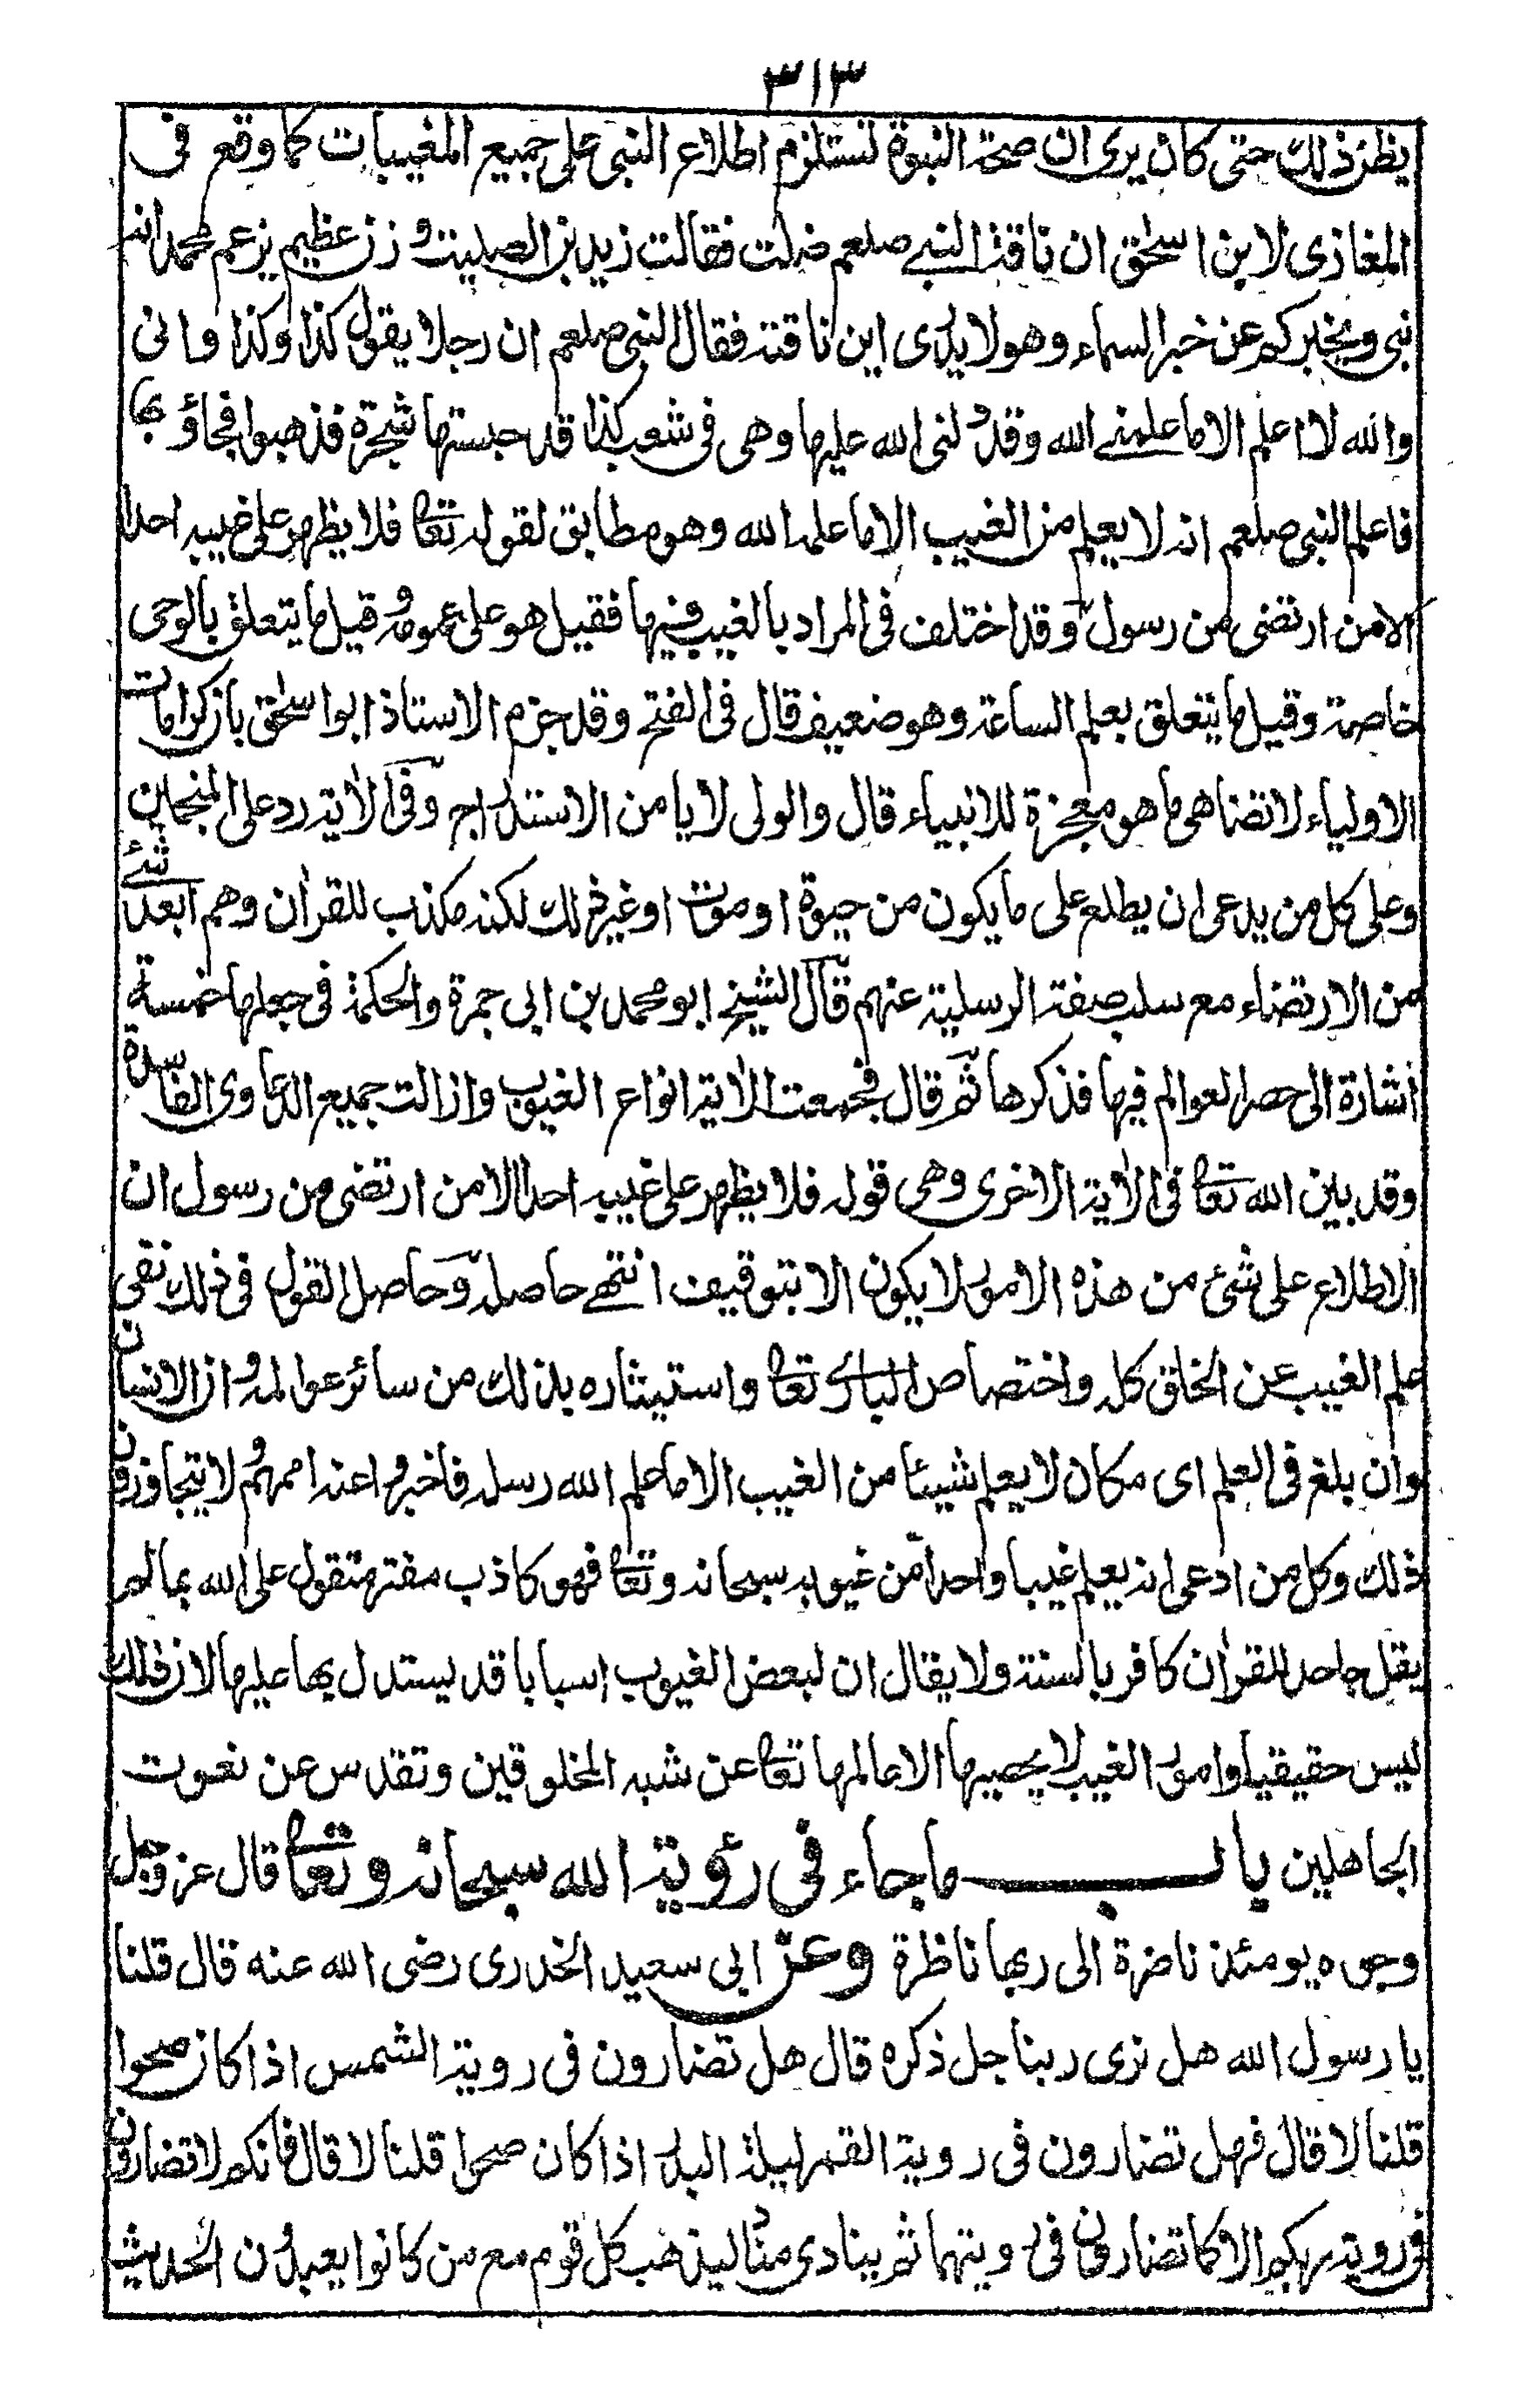 ٣١٣
يظن ذلك حتى كان يرى ان صحة النبوة تستلزم اطلاع النبى على جميع المغيبات كما وقع فى
المغازى لابن اسحٰق ان ناقة النبى صلعم ضلت فقالت زيد بن الصليت وزن عظيم يزعم محمد انه
نبى ويخبركم عن خبر السماء وهو لا يدرى اين ناقته فقال النبى صلعم ان رجلا يقول كذا وكذا وانى
والله لا اعلم الا ما علمنى الله وقد دلنى الله عليها وهى فى شعب كذا قد حبستها شجرة فذهبوا فجاؤ بها
فاعلم النبى صلعم انه لا يعلم من الغيب الا ما علمه الله وهو مطابق لقوله تعالى فلا يظهر على غيبه احدا
الا من ارتضى من رسول وقد اختلف فى المراد بالغيب فيها فقيل هو على عمومه وقيل ما يتعلق بالوحى
خاصة وقيل ما يتعلق بعلم الساعة وهو ضعيف قال فى الفتح وقد جزم الاستاذ ابو اسحٰق بان كرامات
الاولياء لا تضاهى ما هو معجزة للانبياء قال والولى لا يامن الاستدراج وفى الاٰية رد على المنجمين
وعلى كل من يدعى ان يطلع على ما يكون من حيوة او موت او غير ذلك لكنه مكذب للقراٰن وهم ابعد شئ
من الارتضاء مع سلب صفة الرسلية عنهم قال الشيخ ابو محمد بن ابى جمرة والحكمة فى جعلها خمسة
اشارة الى حصر العوالم فيها فذكرها ثم قال فجمعت الاٰية انواع الغيوب وازالت جميع الدعاوى الفاسدة
وقد بين الله تعالى فى الاٰية الاخرى وهى قوله فلا يظهر على غيبه احدا الا من ارتضى من رسول ان
الاطلاع على شئ من هذه الامور لا يكون الا بتوقيف انتهى حاصله وحاصل القول فى ذلك نفى
علم الغيب عن الخلق كله واختصاص البارى تعالى واستيثاره بذلك من سائر عوالمه وان الانسان
وان بلغ فى العلم اى مكان لا يعلم شيئا من الغيب الا ما علم الله رسله فاخبروا عنه اممهم ولا يتجاوزون
ذلك وكل من ادعى انه يعلم غيبا واحدا من غيوبه سبحانه وتعالى فهو كاذب مفتر متقول على الله بما لم
يقل جاحد للقراٰن كافر بالسنة ولا يقال ان لبعض الغيوب اسبابا قد يستدل بها عليها لان ذلك
ليس حقيقيا وامور الغيب لا يحصيها الا عالمها تعالى عن شبه المخلوقين وتقدس عن نعوت
الجاهلين باب ما جاء فى رؤية الله سبحانه وتعالى قال عز وجل
وجوه يومئذ ناضرة الى ربها ناظرة وعن ابى سعيد الخدرى رضى الله عنه قال قلنا
يا رسول الله هل نرى ربنا جل ذكره قال هل تضارون فى روية الشمس اذا كان صحوا
قلنا لا قال فهل تضارون فى روية القمر ليلة البدر اذا كان صحوا قلنا لا قال فانكم لا تضارون
فى روية ربكم الا كما تضارون فى رويتهما ثم ينادى مناد ليذهب كل قوم مع من كانوا يعبدون الحديث